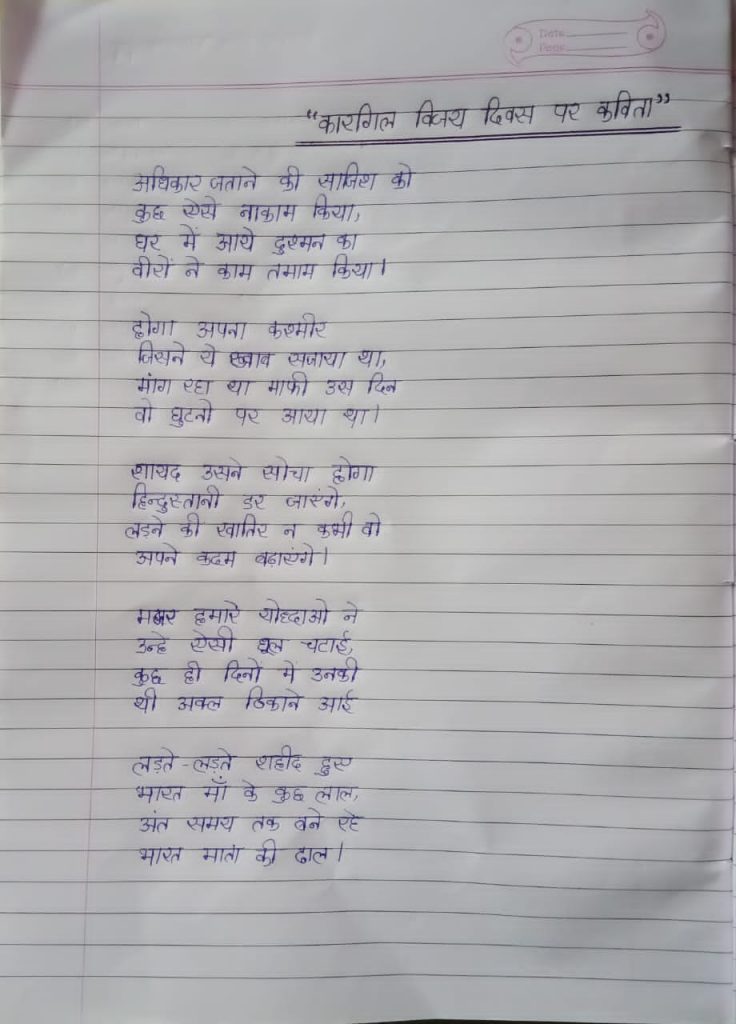 Date
Page
“कारगिल विजय दिवस पर कविता”
अधिकार जताने की साजिश को
कुछ ऐसे नाकाम किया,
घर में आये दुश्मन का
वीरों ने काम तमाम किया।
होगा अपना कश्मीर
जिसने ये ख्वाब सजाया था,
मांग रहा था माफी उस दिन
वो घुटनो पर आया था।
शायद उसने सोचा होगा
हिन्दुस्तानी डर जाएंगे,
लडने की खातिर न कभी वो
अपने कदम बढ़ाएंगे।
मगर हमारे योद्दाओ ने
उन्हे ऐसी धूल चटाई,
कुछ ही दिनों मे उनकी
थी अक्ल ठिकाने आई
लड़ते-लड़ते शहीद हुए
भारत माँ के कुछ लाल,
अंत समय तक बने रहे
भारत माता की ढाल।